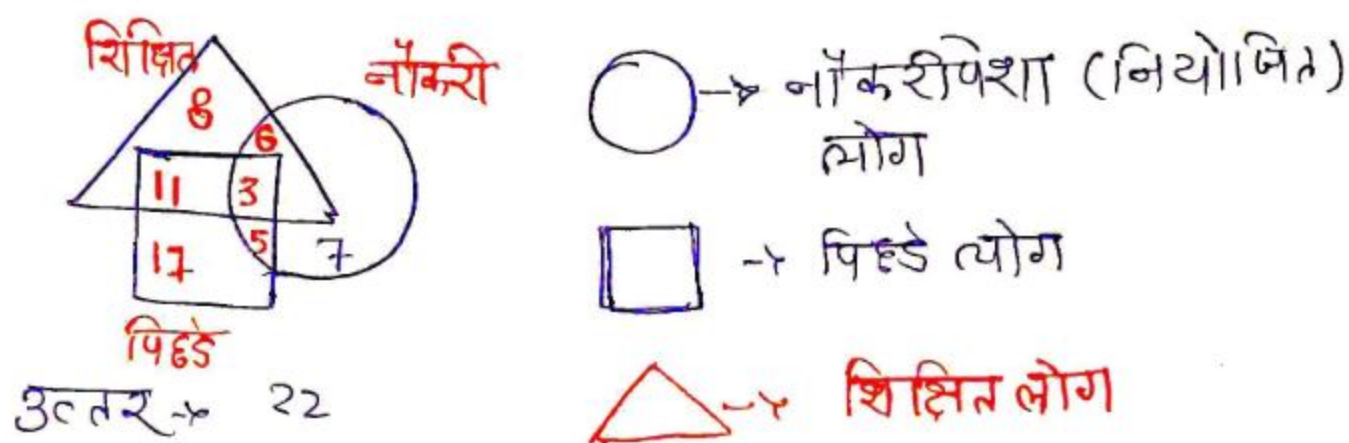 शिक्षित
नौकरी
8
6
11 3
17 5 7
पिछडे
उत्तर → 22
→ नौकरीपेशा (नियोजित)
लोग
→ पिछडे लोग
→ शिक्षित लोग